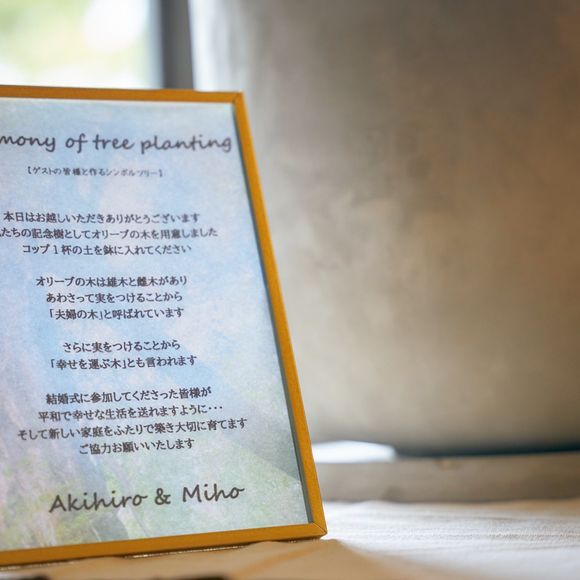 mony of tree planting
【ゲストの皆様と作るシンボルツリー】
本日はお越しいただきありがとうございます
たちの記念樹としてオリーブの木を用意しました
コップ1杯の土を鉢に入れてください
オリーブの木は雄木と雌木があり
あわさって実をつけることから
「夫婦の木」と呼ばれています
さらに実をつけることから
「幸せを運ぶ木」とも言われます
結婚式に参加してくださった皆様が
平和で幸せな生活を送れますように・・・
そして新しい家庭をふたりで築き大切に育てます
ご協力お願いいたします
Akihiro & Miho